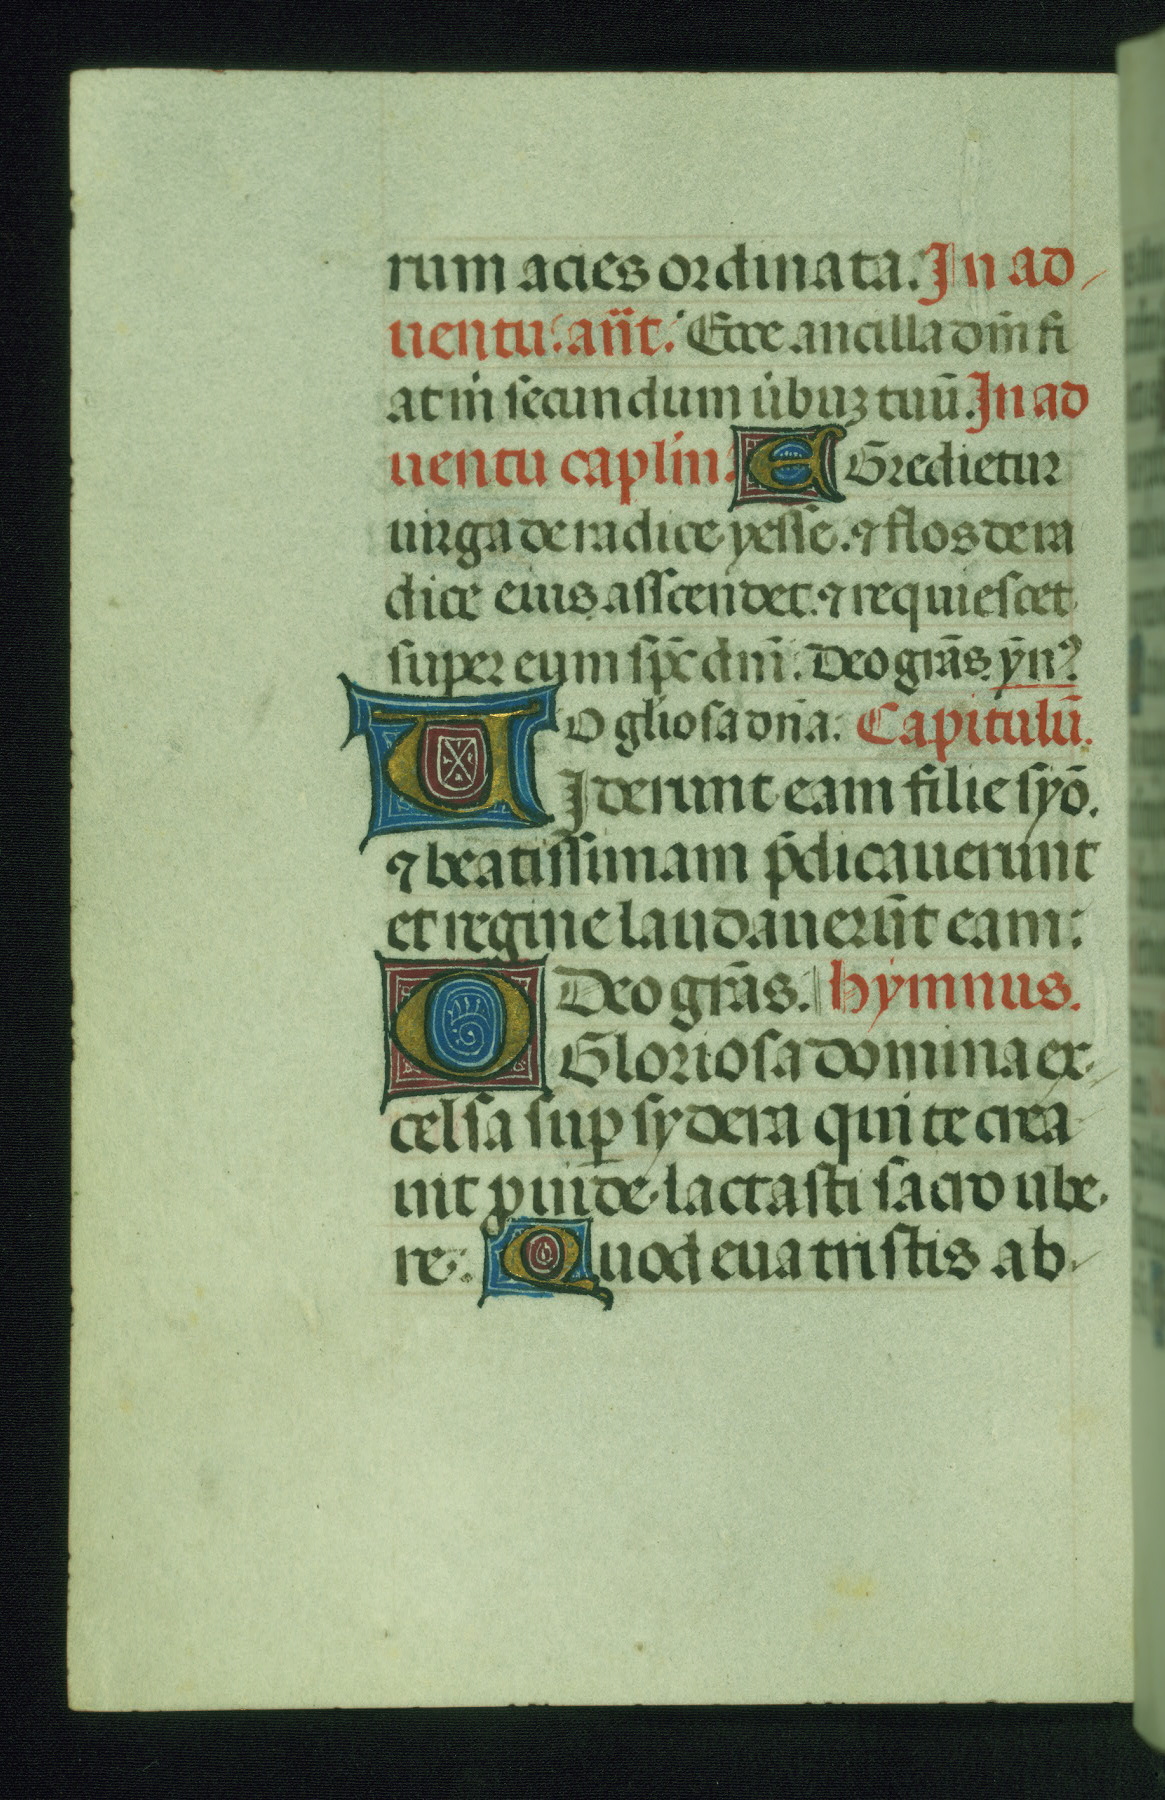 rum acies ordinata. In ad
uentu. an̄t. Ecce ancilla dm̄ fi
at m̄ secundum u̇buꝫ tuū. In ad
uentu caplm̄. EGredietur
uirga de radice yesse. ⁊ flos de ra
dice eius asscendet. ⁊ requiescet
super eum sp̄c dnī. Deo grā̄s. ẏn⁹
O gl̄iosa dn̄a. Capitulū.
UIderunt eam filie syō.
⁊ beatissimam p̄dicauerunt
et regine laudauerūt eam:
Deo grās. hymnus.
O Gloriosa domina ex
celsa sup̲ sydera qui te crea
uit ꝓuide lactasti sacro ube
re. Quod eua tristis ab